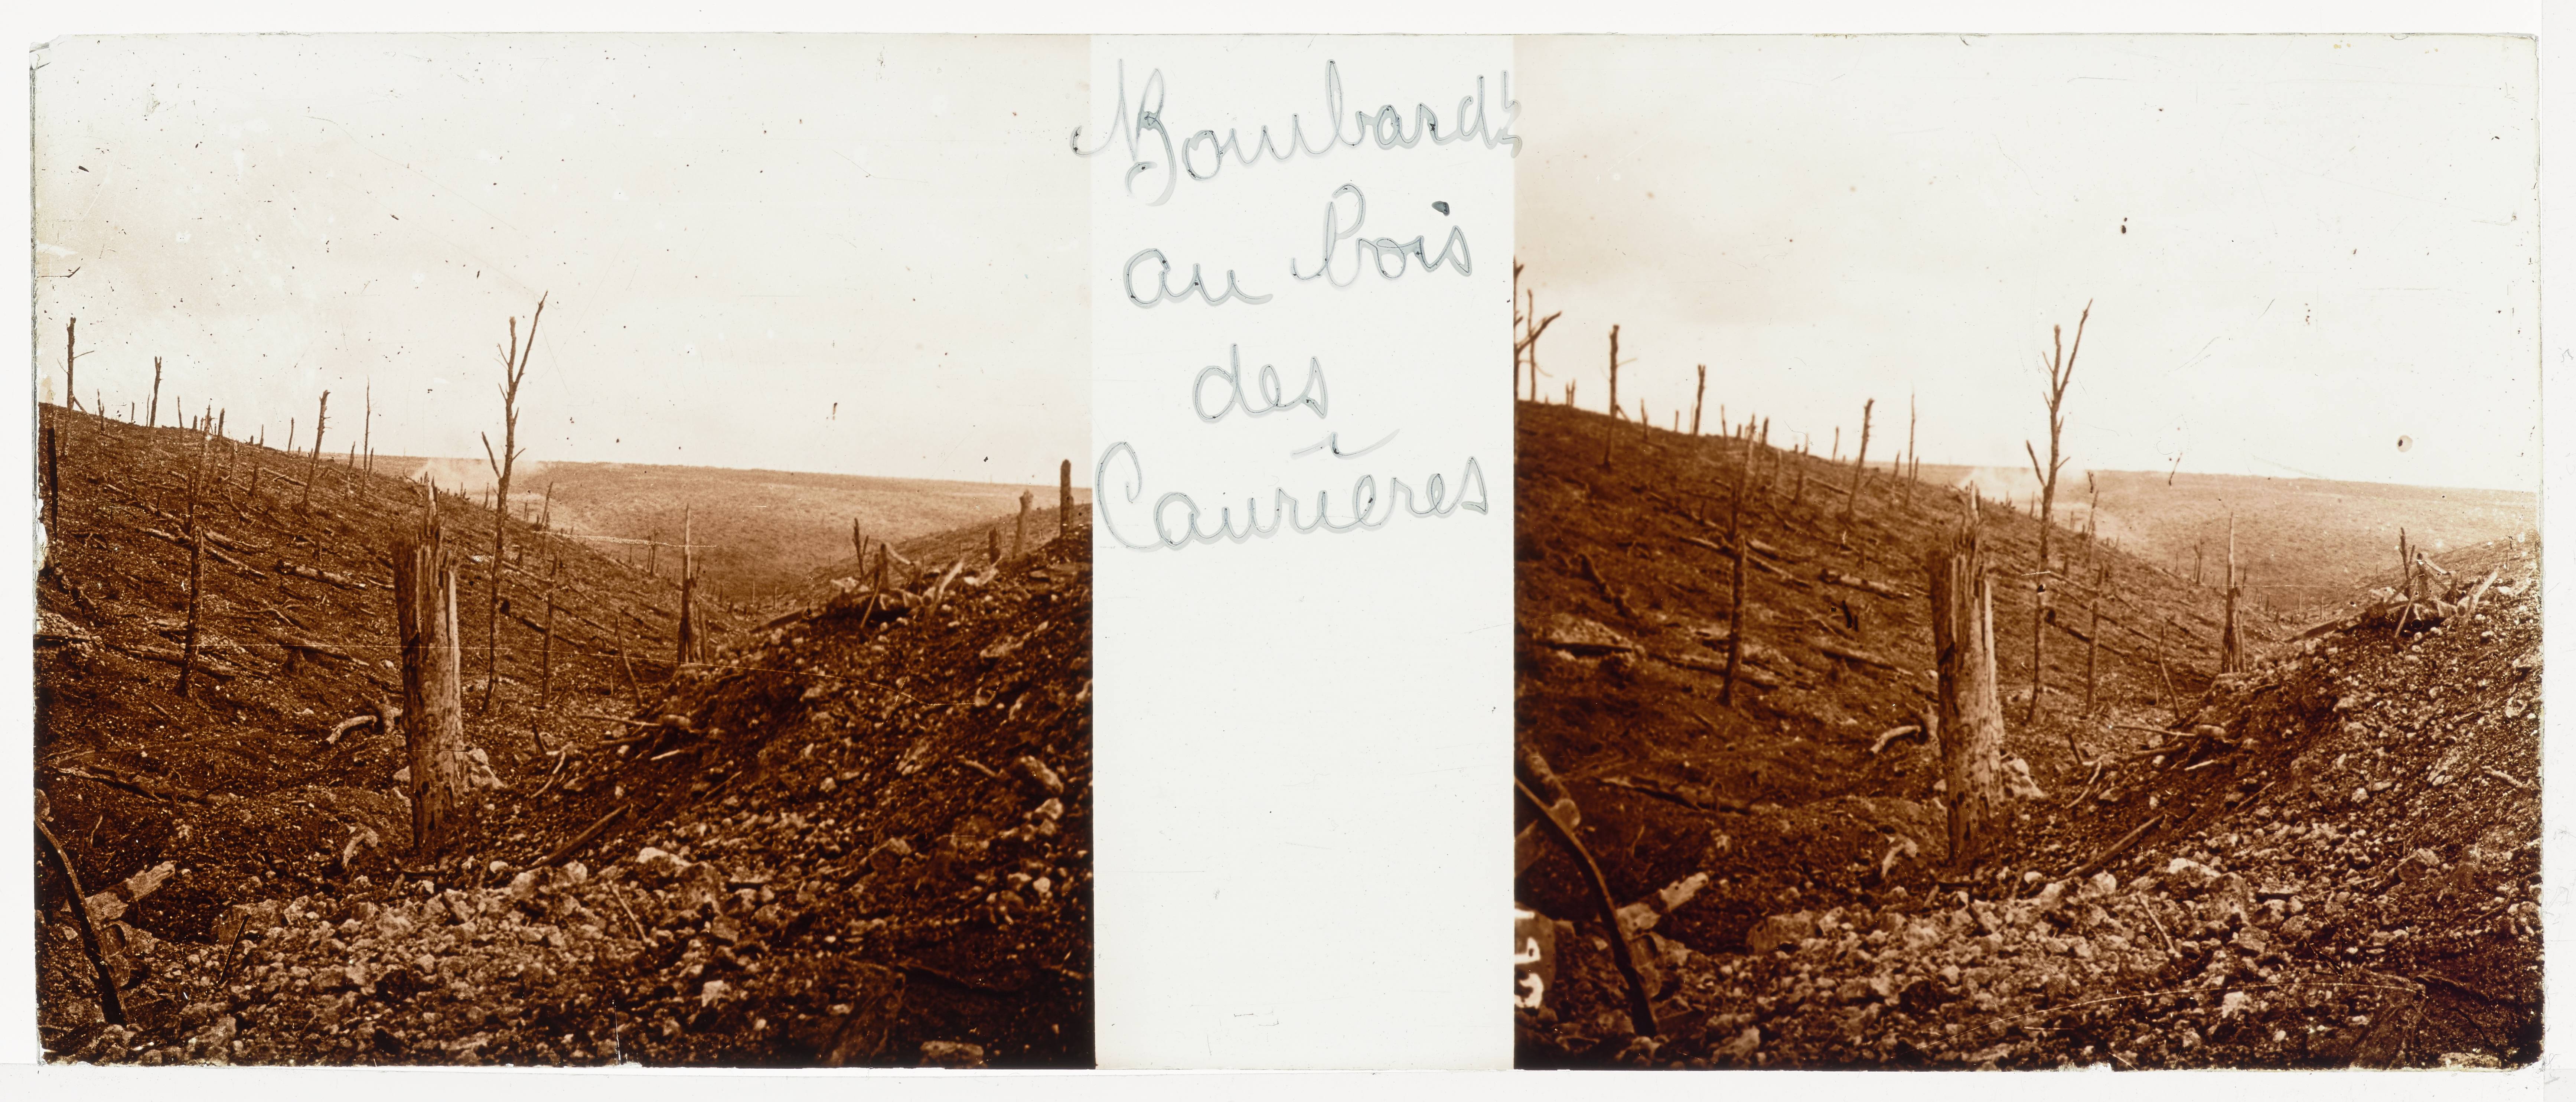 Bombardts
au bois
des
Caurières